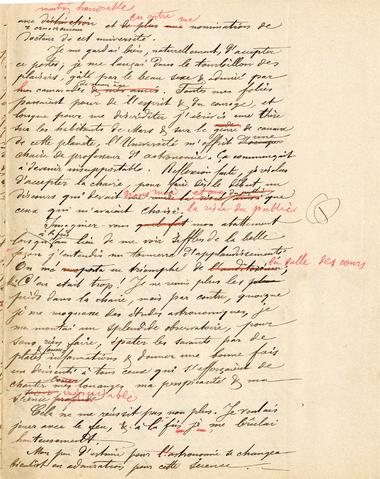 mention honorable
en outre ma
avec distinction et le plus nominations de
docteur de cet université.
Je me gardai bien, naturellement, d'accepter
ce poste; je me lançai dans le tourbillon des
plaisirs, gâté par le beau sexe & admiré par
mes camarades de mes amis. Toutes mes folies
passaient pour de l'esprit & du courage, et
lorsque pour me discréditer j'écrivis une thèse
sur les habitants de Mars & sur le genre de canaux
de cette planète, l'Université m'offrit une
chaire de professeur d'astronomie. Ça commençait
à devenir insupportable. Réflexion faite, je résolus
d'accepter la chaire, pour faire
discours qui devait que
ceux qui m'avaient choisi. la risée du public
Imaginez-vous mon abattement
lorsqu'au lieu de me voir siffler de la belle
façon j'entendis un tonnerre d'applaudissements
On me en triomphe de la salle des cours
C'en était trop! Je ne remis plus les
pieds dans la chaire, mais par contre, quoique
je me moquasse des études astronomiques, je
me montai un splendide observatoire, pour
sans rien faire, épater les savants par de
plates informations & donner une bonne fois
un démenti à tous ceux qui s'efforçaient de
chanter mes louanges, ma perspicacité & ma
science
Cela ne me réussit pas non plus. Je voulais
jouer avec le feu, & à la fin je me brûlai
honteusement.
Mon peu d'estime pour l'astronomie se changea
bientôt en admiration pour cette science.